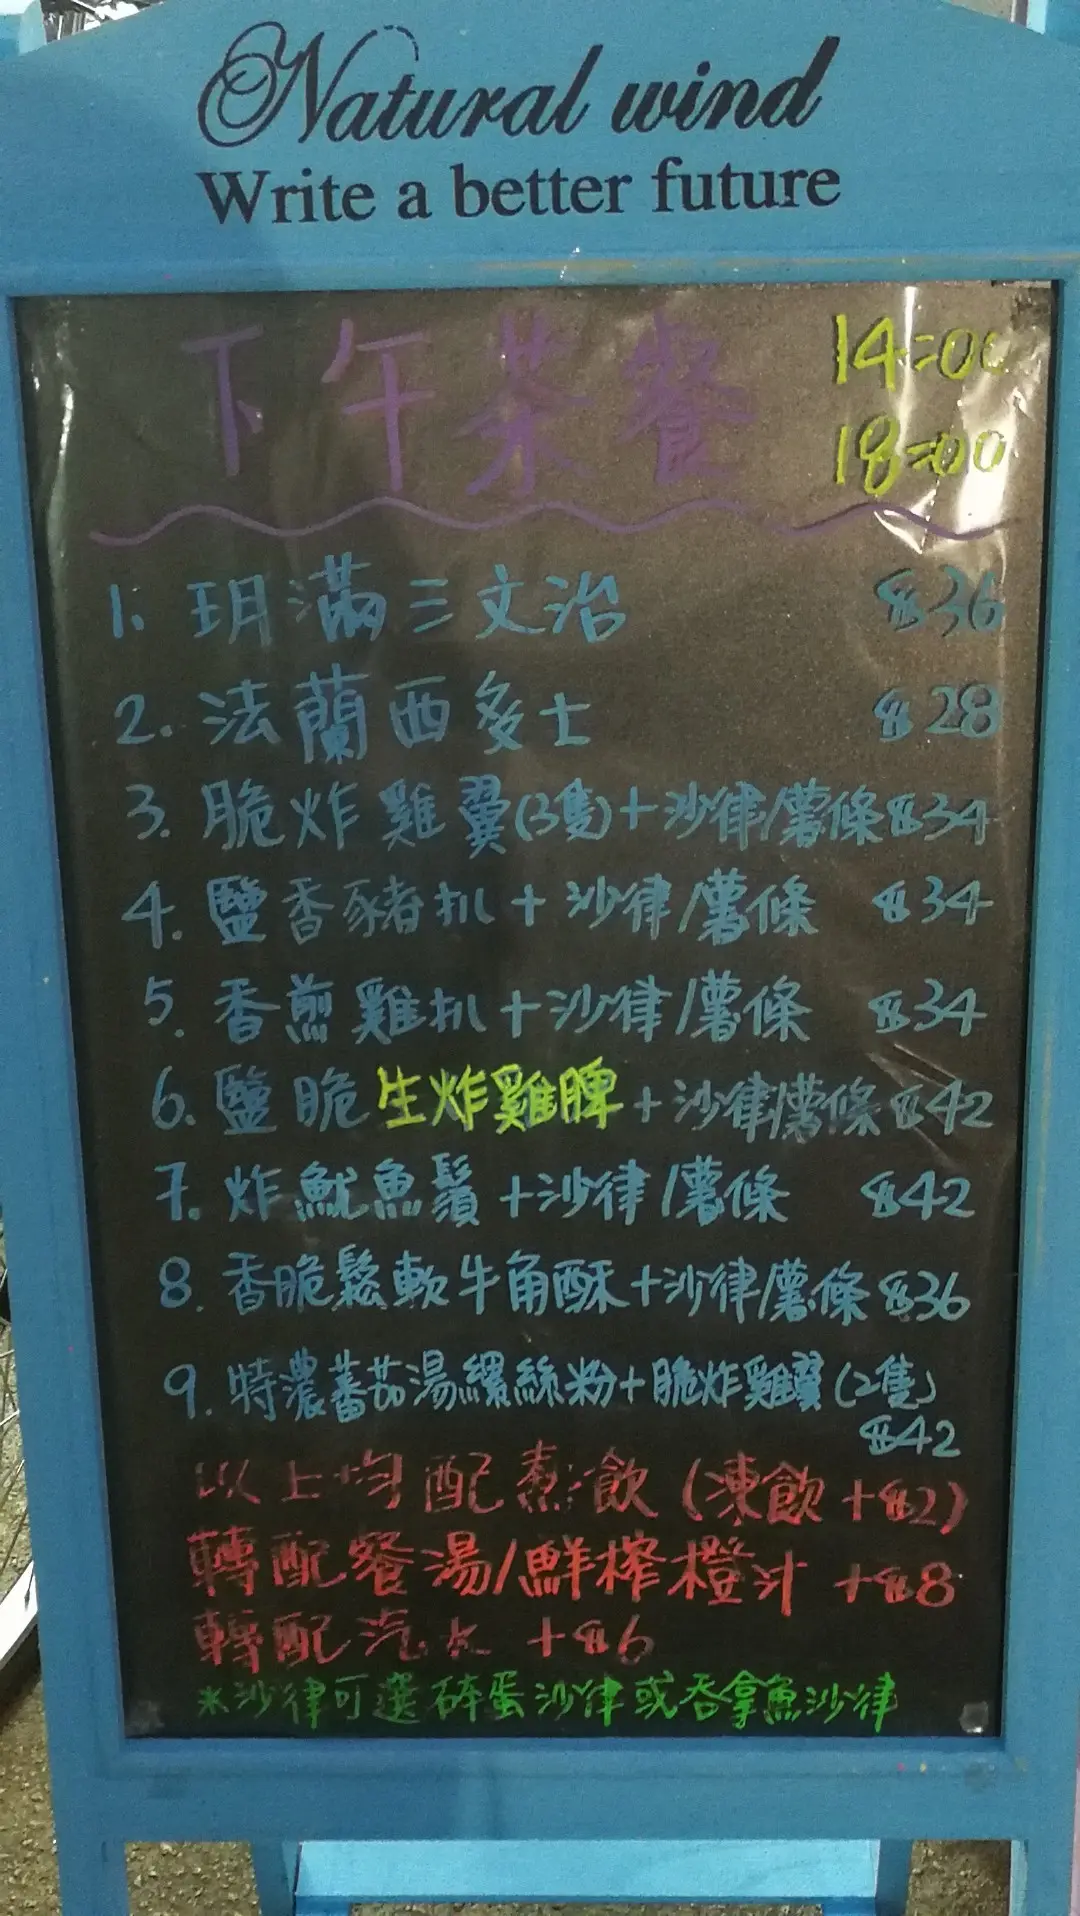 Natural wind
Write a better future
下午茶餐 14:00
18:00
1. 玥滿三文治 $36
2. 法蘭西多士 $28
3. 脆炸雞翼(3隻)+沙律/薯條 $34
4. 鹽香豬扒+沙律/薯條 $34
5. 香煎雞扒+沙律/薯條 $34
6. 鹽脆生炸雞髀+沙律/薯條 $42
7. 炸魷魚鬚+沙律/薯條 $42
8. 香脆鬆軟牛角酥+沙律/薯條 $36
9. 特濃蕃茄湯螺絲粉+脆炸雞翼(2隻)
$42
以上均配熱飲(凍飲+$2)
轉配餐湯/鮮榨橙汁 +$8
轉配汽水 +$6
*沙律可選碎蛋沙律或吞拿魚沙律